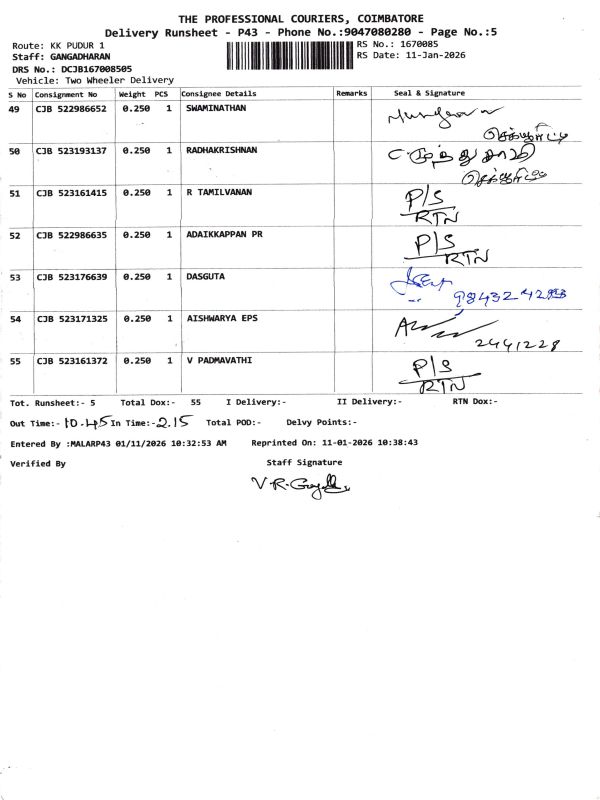 THE PROFESSIONAL COURIERS, COIMBATORE
Delivery Runsheet - P43 - Phone No.:9047080280 - Page No.:5
Route: KK PUDUR 1 RS No.: 1670085
Staff: GANGADHARAN RS Date: 11-Jan-2026
DRS No.: DCJB167008505
Vehicle: Two Wheeler Delivery
S No Consignment No Weight PCS Consignee Details Remarks Seal & Signature
49 CJB 522986652 0.250 1 SWAMINATHAN
செக்யூரிட்டி
50 CJB 523193137 0.250 1 RADHAKRISHNAN
செக்யூரிட்டி
51 CJB 523161415 0.250 1 R TAMILVANAN P/S
RTN
52 CJB 522986635 0.250 1 ADAIKKAPPAN PR P/S
RTN
53 CJB 523176639 0.250 1 DASGUTA
54 CJB 523171325 0.250 1 AISHWARYA EPS
2441228
55 CJB 523161372 0.250 1 V PADMAVATHI P/S
RTN
Tot. Runsheet:- 5 Total Dox:- 55 I Delivery:- II Delivery:- RTN Dox:-
Out Time:- 10.45 In Time:- 2.15 Total POD:- Delvy Points:-
Entered By :MALARP43 01/11/2026 10:32:53 AM Reprinted On: 11-01-2026 10:38:43
Verified By Staff Signature